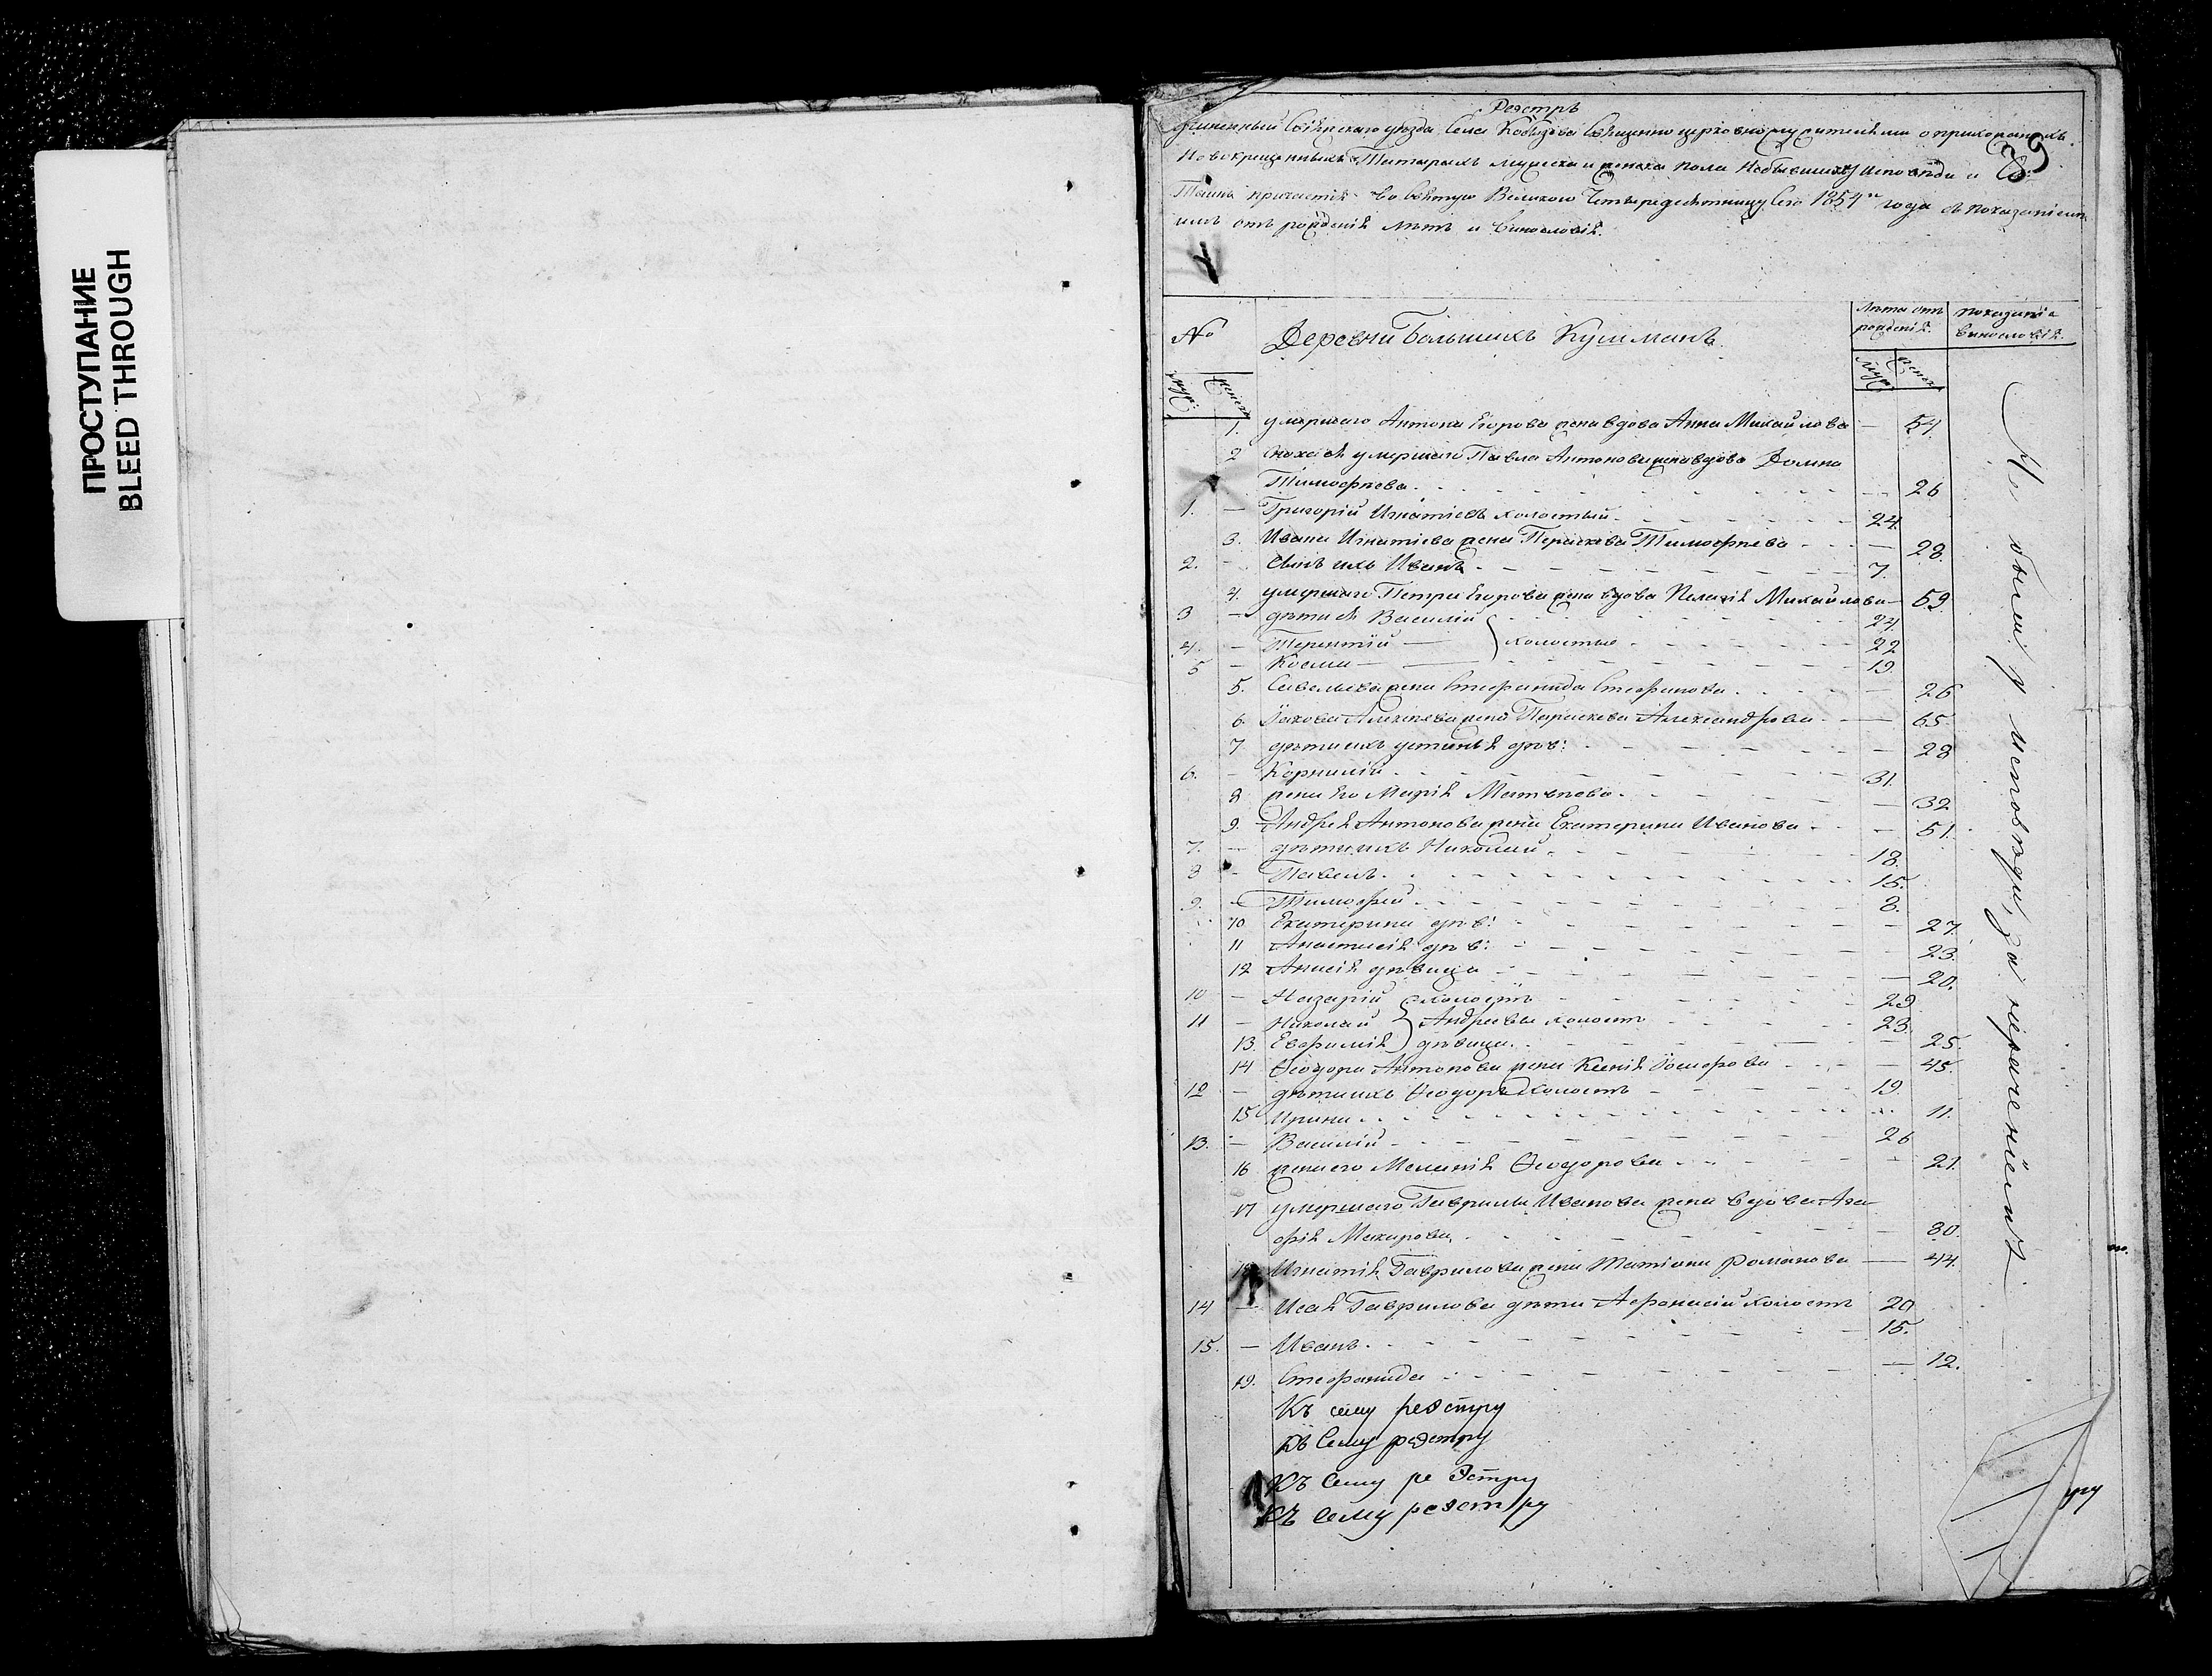 ПРОСТУПАНИЕ
BLEED THROUGH
Реэстръ
учиненный Свіяжскаго уѣзда села Кобызева Священно церковно служителями о прихожанахъ
Новокрещенныхъ Татарахъ мужеска и женска пола Небывшихъ у исповѣди и
Таинъ причастія во святую Великую Четыредесятницу сего 1854го года съ показаніемъ
имъ отъ рожденія лѣтъ и винословія.
89
№ Деревни Большихъ Кушманъ. Лѣта отъ рожденія. показаніе винословія.
муж: женск муж женск
1. умершаго Антона Егорова жена вдова Анна Михайлова — 54.
2 сноха ея умершаго Павла Антонова жена вдова Домна
Тимофѣева. — 26
1. — Григорій Игнатіевъ холостый. 24.
3. Ивана Игнатіева жена Параскева Тимофѣева — 28.
2. — сынъ ихъ Иванъ 7.
4. умершаго Петра Егорова жена вдова Пелагія Михайлова — 59.
3 — дѣти ея Василій 24.
4. — Терентій — холостые 22
5 — Косма — 19.
5. Савельева жена Стефанида Стефанова. — 26
6. Іакова Алексѣева жена Параскева Александрова — 65.
7. дѣти ихъ устинья дѣв: — 28
6. — Корнилій 31.
8 жена Его Марія Матвѣева. — 32
9. Андрея Антонова жена Екатерина Иванова — 51.
7. — дѣти ихъ Николай 18.
8 — Павелъ. 15.
9. — Тимофей 8.
10 Екатерина дѣв: — 27.
11 Анастасія дѣв: — 23.
12 Анисія дѣвица — 20.
10 — Назарій холостъ 29
11 — Николай Андреевы холостъ 23.
13. Евфимія дѣвица. — 25.
14 Ѳеодора Антонова жена Ксенія Іосифова — 45.
12 — дѣти ихъ Ѳеодоръ холостъ 19.
15 Ирина 11.
13. — Василій 26
16 жена его Меланія Ѳеодорова — 21.
17 умершаго Гаврилы Иванова жена вдова Ага-
фія Макарова. — 80.
18 Игнатія Гаврилова жена Татіана Романова — 44.
14 — Исая Гаврилова дѣти Афанасій холостъ 20
15. — Иванъ. 15.
19. Стефанида — 12.
Не были у исповѣди за нераченіемъ
Къ сему реэстру
Къ Сему реэстру
Къ Сему реэстру
Къ сему реэстру
ру